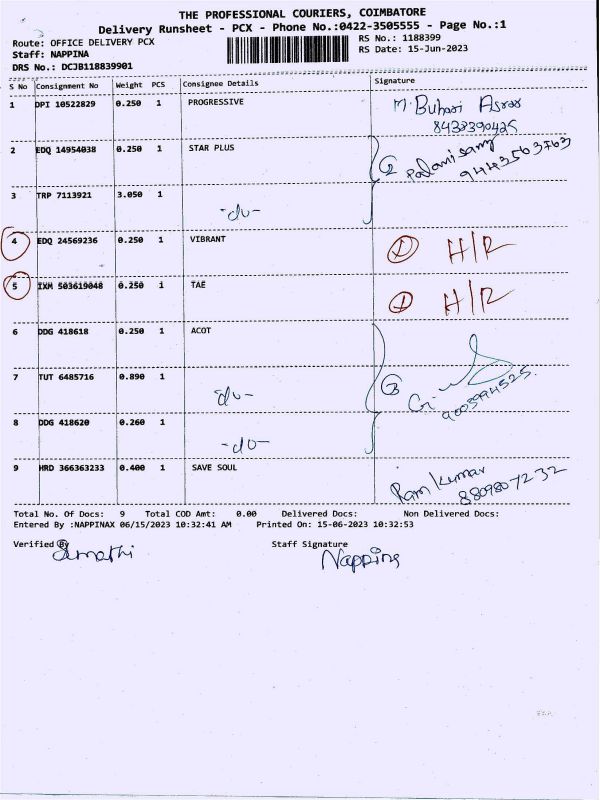 THE PROFESSIONAL COURIERS, COIMBATORE
Delivery Runsheet - PCX - Phone No.:0422-3505555 - Page No.:1
Route: OFFICE DELIVERY PCX RS No.: 1188399
Staff: NAPPINA RS Date: 15-Jun-2023
DRS No.: DCJB118839901
S No Consignment No Weight PCS Consignee Details Signature
1 DPI 10522829 0.250 1 PROGRESSIVE M. Buhari
8433390425
2 EDQ 14954038 0.250 1 STAR PLUS 2 Palanisamy
9443563763
3 TRP 7113921 3.050 1 -du-
4 EDQ 24569236 0.250 1 VIBRANT 1 H/R
5 IXM 503619048 0.250 1 TAE 1 H/R
6 DDG 418618 0.250 1 ACOT
7 TUT 6485716 0.890 1 -du- 3
9003994525
8 DDG 418620 0.260 1 -du-
9 HRD 366363233 0.400 1 SAVE SOUL Ram Kumar
8809807232
Total No. Of Docs: 9 Total COD Amt: 0.00 Delivered Docs: Non Delivered Docs:
Entered By :NAPPINAX 06/15/2023 10:32:41 AM Printed On: 15-06-2023 10:32:53
Verified By Staff Signature
Nappina